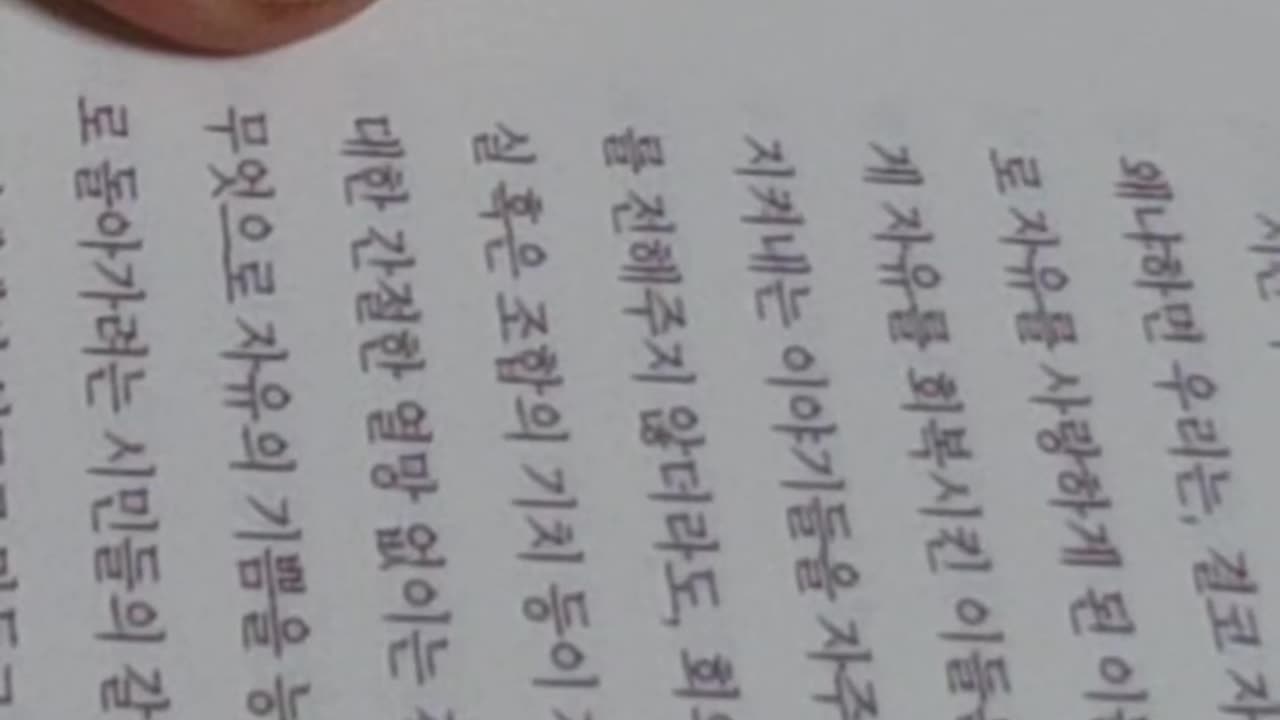 왜냐하면 우리는, 결코 자
로 자유를 사랑하게 된 이
게 자유를 회복시킨 이들
지켜내는 이야기들을 자주
를 전해주지 않더라도, 회의
실 혹은 조합의 기치 등이
대한 간절한 열망 없이는
무엇으로 자유의 기쁨을 능
로 돌아가려는 시민들의 갈